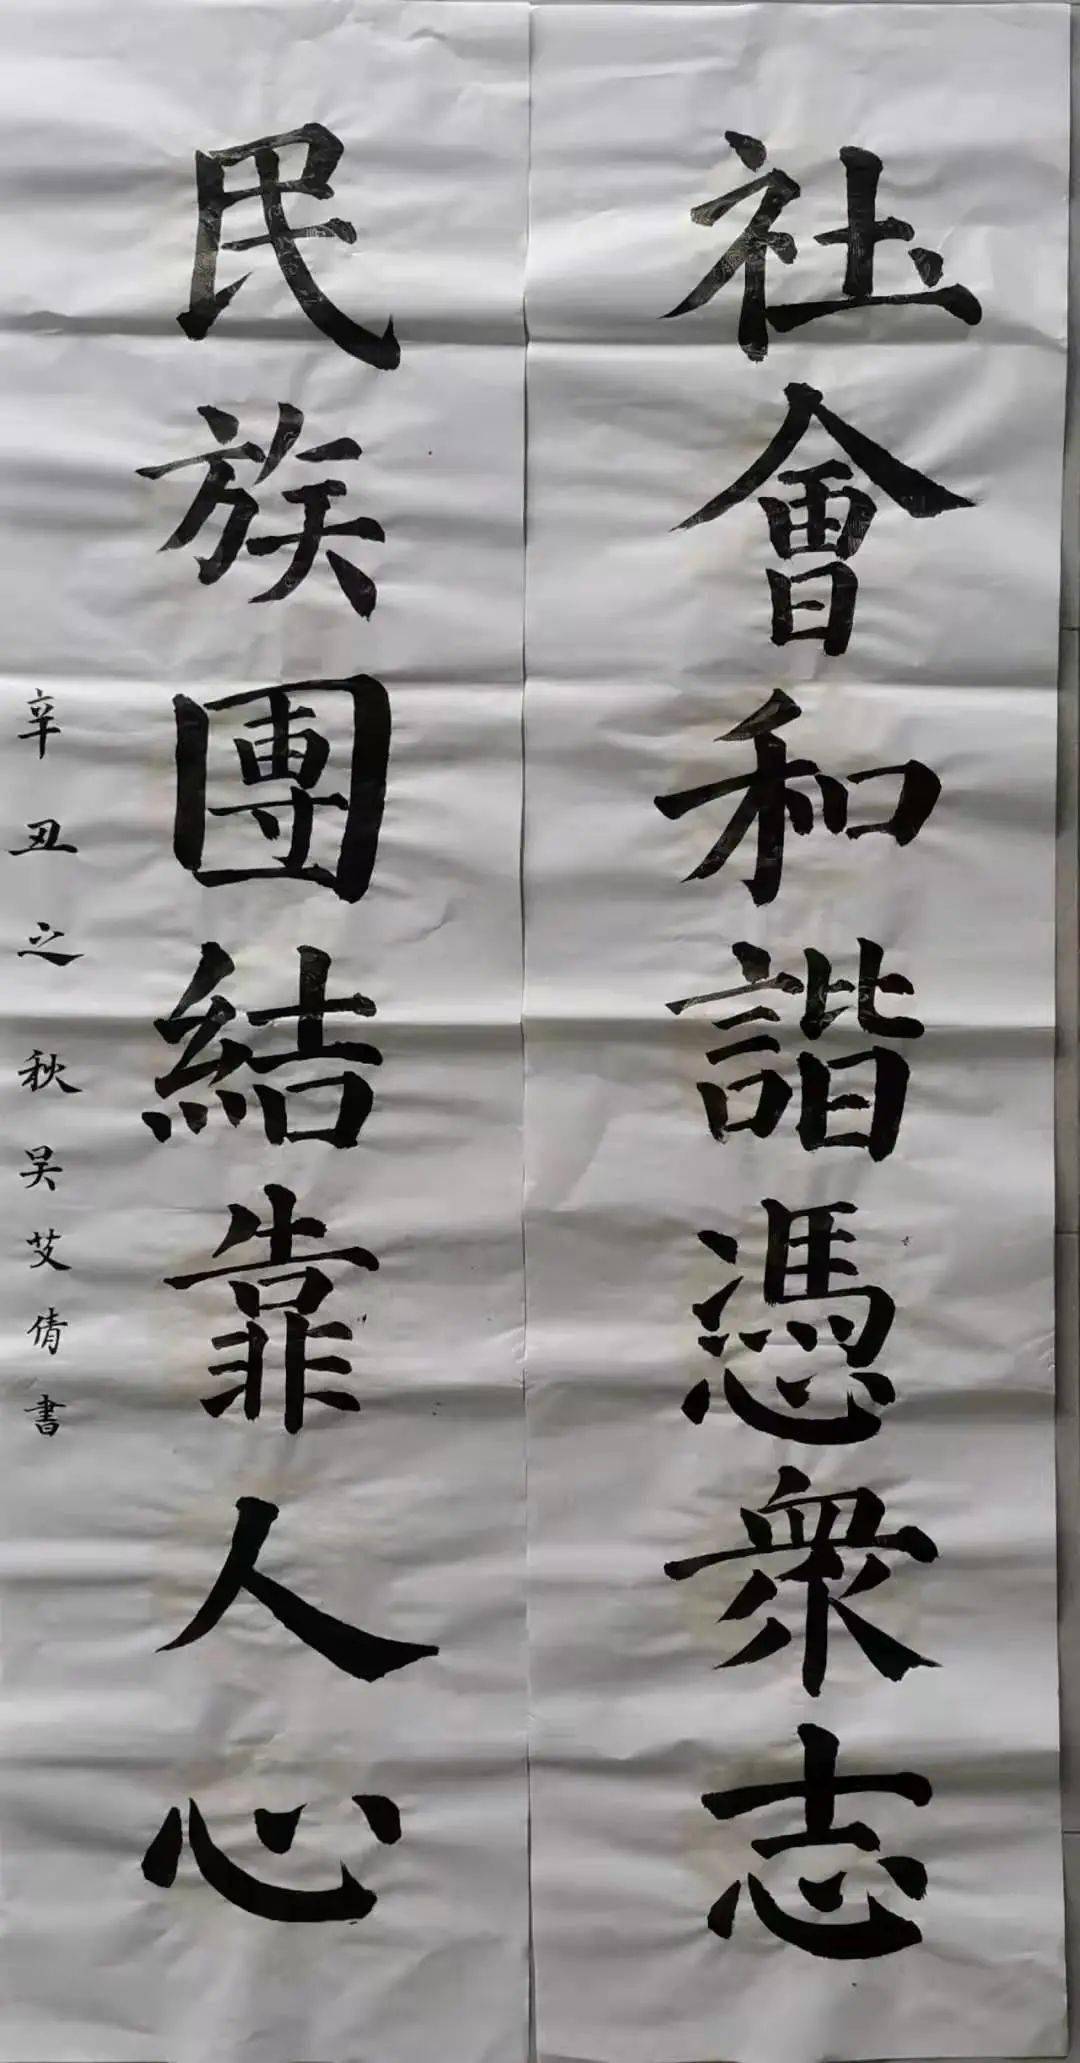 社會和諧憑衆志
民族團結靠人心
辛丑之秋吴艾倩書